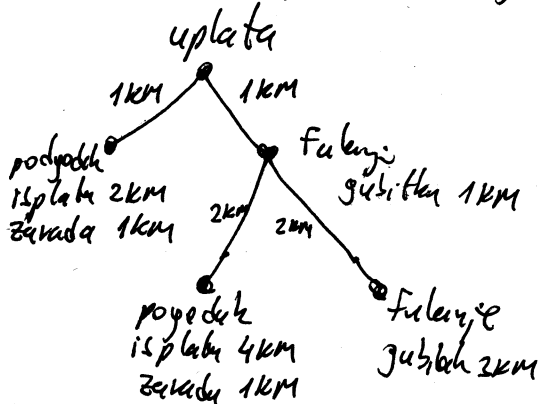 uplata
1KM
1KM
pogodak
isplata 2KM
zarada 1KM
Fulanje
gubitak 1KM
2KM
2KM
pogodak
isplata 4KM
zarada 1KM
Fulanje
gubitak 3KM